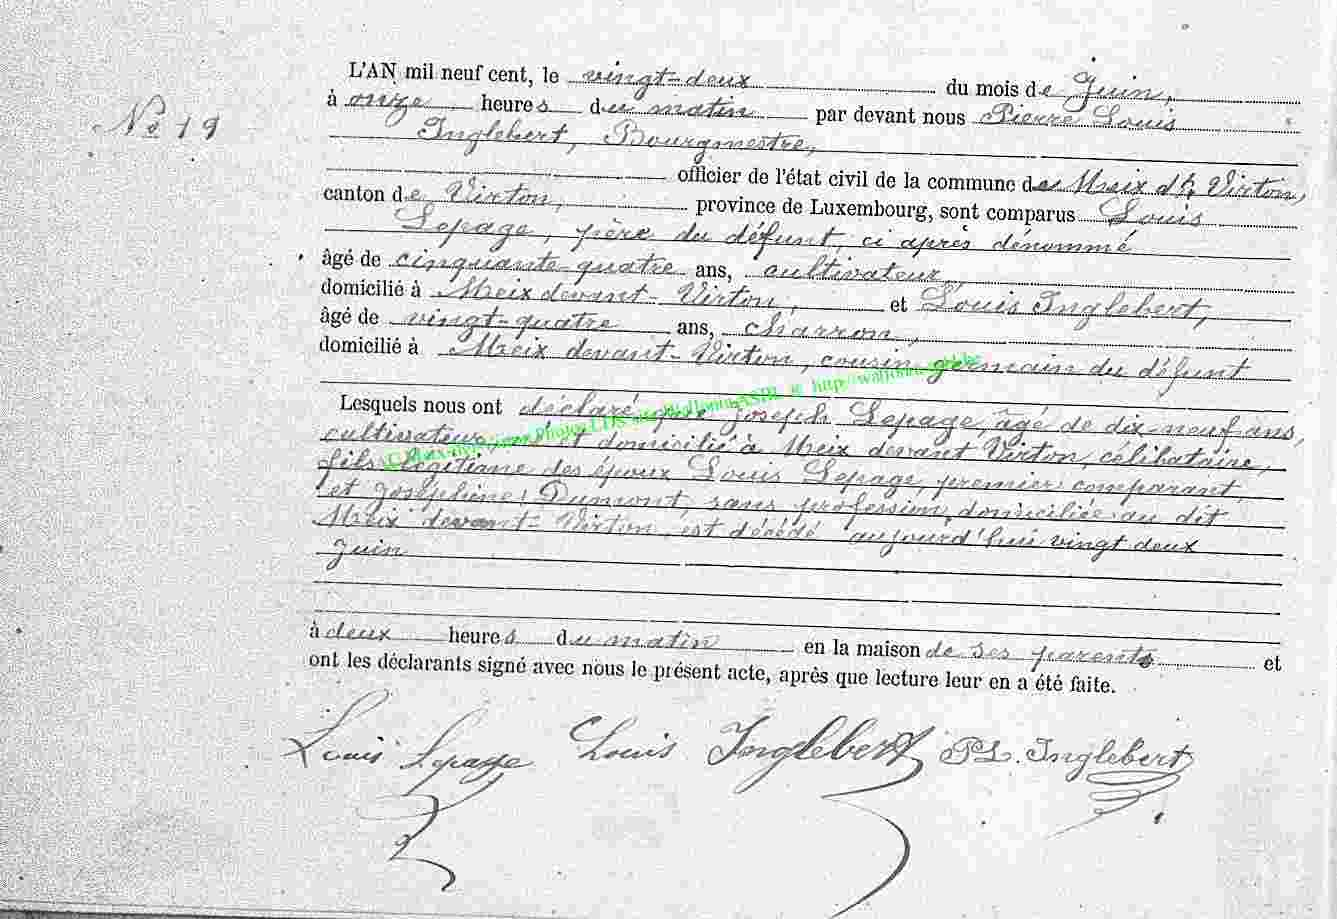 L'AN mil neuf cent, le vingt-deux du mois de Juin,
No 19
à onze heures du matin par devant nous Pierre Louis
Inglebert, Bourgmestre,
officier de l'état civil de la commune de Meix dt Virton,
canton de Virton, province de Luxembourg, sont comparus Louis
Lepage, père du défunt, ci après dénommé
âgé de cinquante quatre ans, cultivateur,
domicilié à Meix devant-Virton, et Louis Inglebert,
âgé de vingt-quatre ans, charron,
domicilié à Meix devant-Virton, cousin germain du défunt
Lesquels nous ont déclaré que Joseph Lepage, âgé de dix-neuf ans,
cultivateur, et domicilié à Meix devant Virton, célibataire,
fils légitime des époux Louis Lepage, premier comparant,
et Joséphine Dumont, sans profession, domiciliée au dit
Meix devant-Virton, est décédé aujourd'hui vingt deux
Juin
à deux heures du matin en la maison de ses parents et
ont les déclarants signé avec nous le présent acte, après que lecture leur en a été faite.
Louis Lepage Louis Inglebert PL. Inglebert